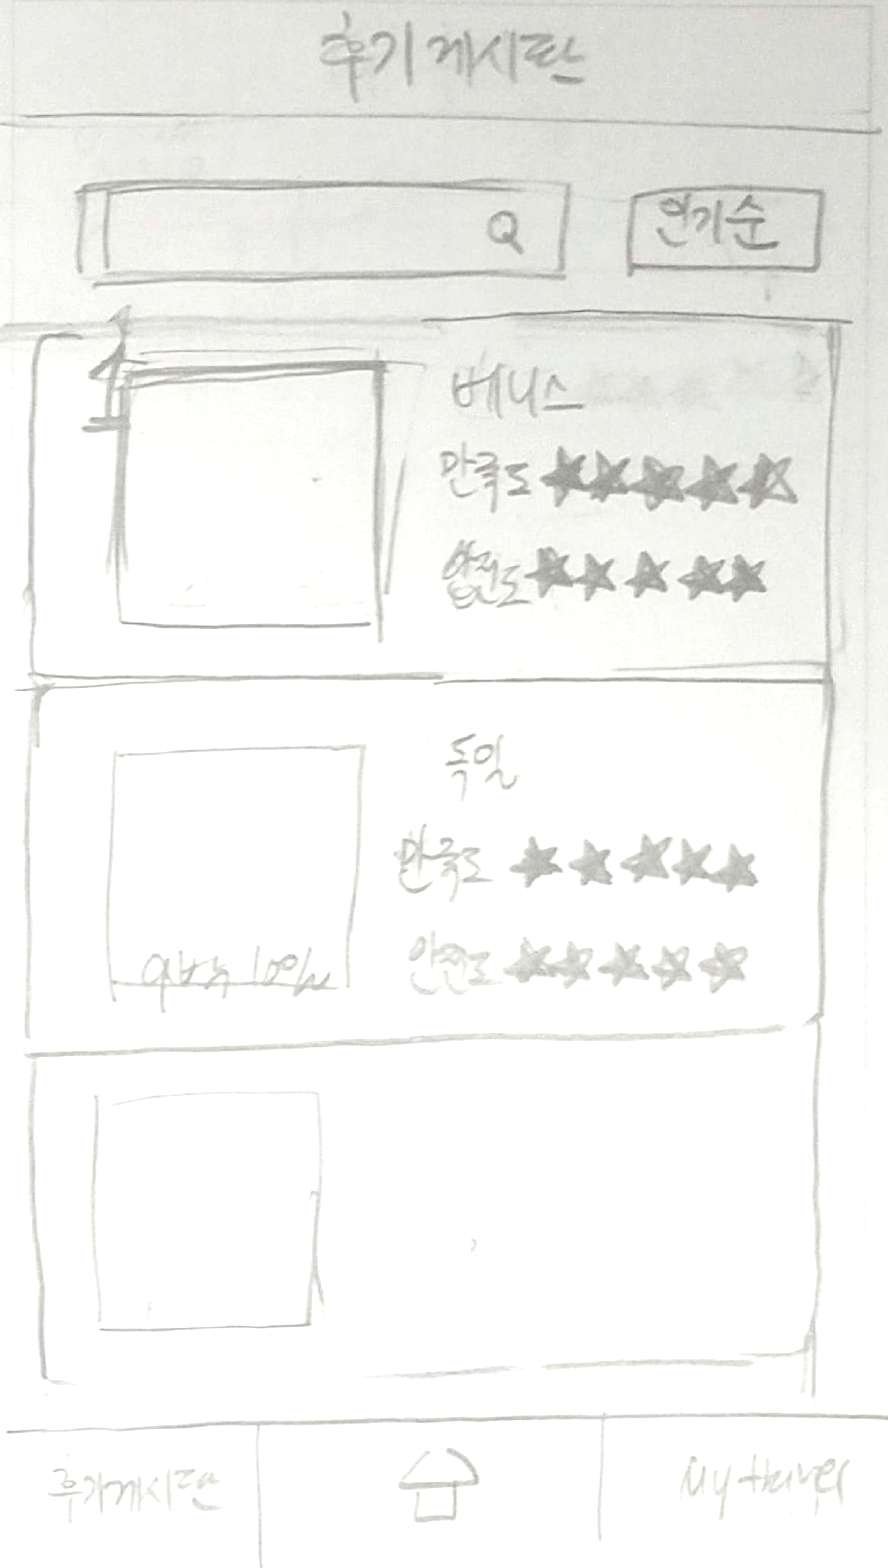 후기게시판
인기순
1
베니스
만족도 ★★★★★
안전도 ★★★★★
독일
만족도 ★★★★★
안전도 ★★★★★
후기게시판
My travel